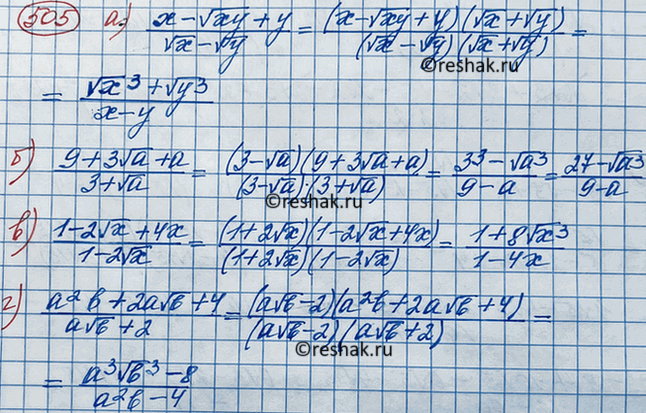 505 а) (x-√xy+y)/(√x-√y) = ((x-√xy+y)(√x+√y))/((√x-√y)(√x+√y)) =
©reshak.ru
= (√x³+√y³)/(x-y)
б) (9+3√a+a)/(3+√a) = ((3-√a)(9+3√a+a))/((3-√a)·(3+√a)) = (3³-√a³)/(9-a) = (27-√a³)/(9-a)
©reshak.ru
в) (1-2√x+4x)/(1-2√x) = ((1+2√x)(1-2√x+4x))/((1+2√x)(1-2√x)) = (1+8√x³)/(1-4x)
г) (a²b+2a√b+4)/(a√b+2) = ((a√b-2)(a²b+2a√b+4))/((a√b-2)(a√b+2)) =
©reshak.ru
= (a³√b³-8)/(a²b-4)